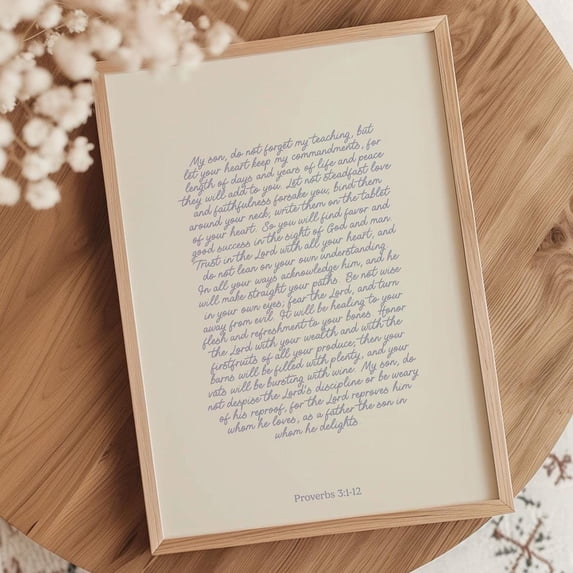 My son, do not forget my teaching, but
let your heart keep my commandments, for
length of days and years of life and peace
they will add to you. Let not steadfast love
and faithfulness forsake you; bind them
around your neck; write them on the tablet
of your heart. So you will find favor and
good success in the sight of God and man.
Trust in the Lord with all your heart, and
do not lean on your own understanding.
In all your ways acknowledge him, and he
will make straight your paths. Be not wise
in your own eyes; fear the Lord, and turn
away from evil. It will be healing to your
flesh and refreshment to your bones. Honor
the Lord with your wealth and with the
firstfruits of all your produce; then your
barns will be filled with plenty, and your
vats will be bursting with wine. My son, do
not despise the Lord's discipline or be weary
of his reproof, for the Lord reproves him
whom he loves, as a father the son in
whom he delights
Proverbs 3:1-12